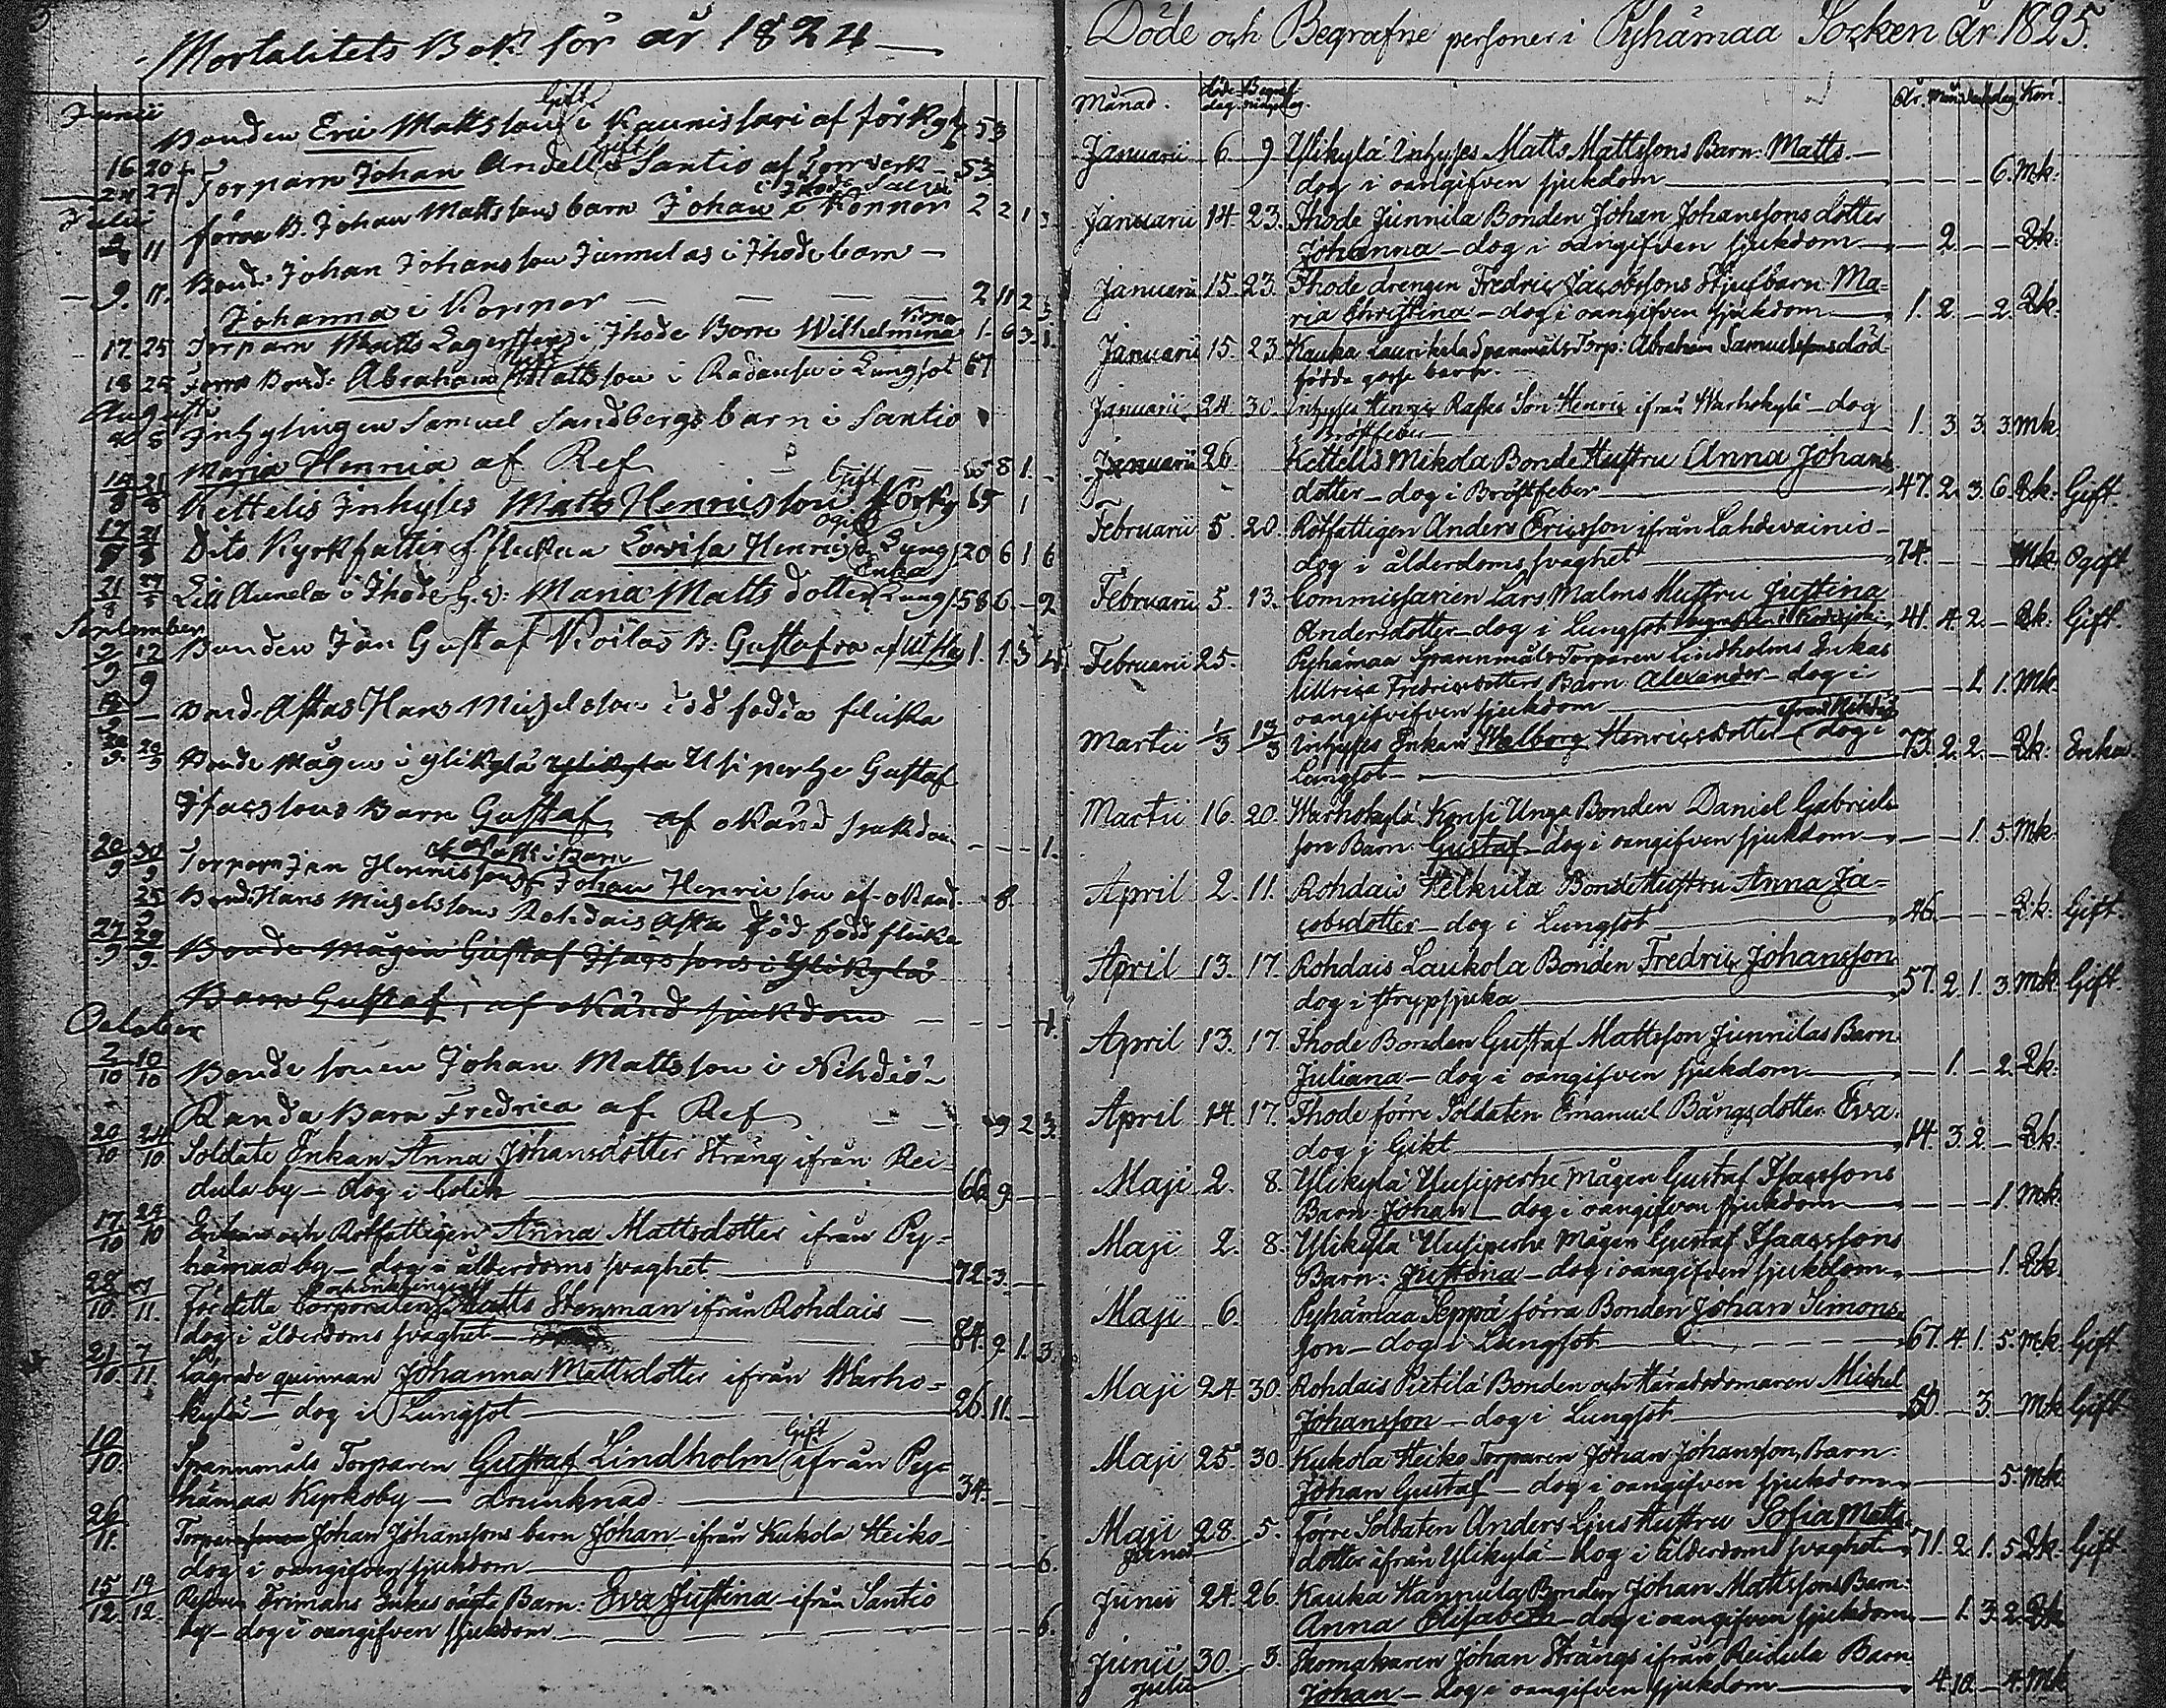 Mortalitets Bok för år 1824
Junii
Bonden Eric Mattsson i Kaunissari af förkyl 53
Gift
16 20 Torparn Johan Andell i Santio af 53
Gift
24 27 förra B. Johan Mattssons barn Johan i Koppor 2 2 1 3
Julii
11 Bond. Johan Johansson Junnilas i Ihode barn
9. 11. Johanna i Koppor 2 11 2 3
17. 25 Torparn Matts Lagerströms i Ihode Barn Wilhelmina 1 6 3 1.
18 25 Förra Bond: Abraham Mattsson i i Lungsot 67
Augusti
8 Inhysingen Samuel Sandbergs barn i Santio
Maria Henrica af Ref 8 1.
14/8 21/8 Kettelis Inhyses Matts Henricsson förky 65 1
Gift
17/8 21/8 Dito Kyrkfattig flickan Lovisa Henricsd. Lungs 20 6 1 6
Ogift
21/8 Lill Aunela i Ihode G. v: Maria Matts dotter Lungs 58 6 - 2
Enka
September
2/9 12/9 Bonden Jan Gustaf B: Gustafva af 1. 1. 3 4
Bond. Astas Hans Michelsson död födda flicka
Bonde Mågen i Ylikylä Ylikylä Usiperhe Gustaf
Isacssons Barn Gustaf af okänd sjukdom 1.
20/9 30/9 Torparn Jan Henricssons Johan Henricsson af okänd 8.
25/9 Bond. Hans Michelssons Rohdais Asta död född flicka
27/9 29/9 Bonde Mågen Gustaf Isacssons i Ylikylä
Barn Gustaf, af okänd sjukdom 1.
October
2/10 10/10 Bondesonen Johan Mattsson i Nihdiö
Randa Barn Fredrica af Ref 9 2 3.
20/10 24/10 Soldate Enkan Anna Johansdotter Sträng ifrån Rei-
dula by - dog i colik 66 9
17/10 24/10 Enkan och Rotfattigen Anna Mattsdotter ifrån Py-
hämaa by - dog i ålderdoms svaghet 72. 3.
28/10 7/11. för detta Corporalen Matts Stenman ifrån Rohdais
dog i ålderdoms svaghet 84. 9. 1. 3.
21/10 7/11. Lägrade quinnan Johanna Mattsdotter ifrån Warho-
kylä - dog i Lungsot 26. 11.
10/10. Spannmåls Torparen Gustaf Lindholm ifrån Py-
Gift
hämaa Kyrkoby - drunknad 34.
26/11. Torparesonen Johan Johanssons barn Johan - ifrån Kukola Heiko
dog i oangifven sjukdom 6.
15/12. 19/12. Frimans Enkas oägta Barn: Eva Justina - ifrån Santio
by - dog i oangifven sjukdom 6.
Döde och Begrafne personer i Pyhämaa Socken År 1825.
Månad. döde dag. Begrafningsdag. År. Mån. dag. Kön.
Januarii 6 9 Ylikylä Inhyses Matts Mattssons Barn: Matts -
dog i oangifven sjukdom 6. Mk.
Januarii 14. 23. Ihode Junnila Bonden Johan Johanssons dotter
Johanna - dog i oangifven sjukdom 2. Qk.
Januarii 15. 23. Ihode drengen Fredric Jacobssons Stjufbarn: Ma-
ria Christina - dog i oangifven sjukdom 1. 2. - 2. Qk.
Januarii 15. 23. Kauka Laurikala Spanmåls Torp: Abraham Samuelssons död
födda gosse barn.
Januarii 24. 30. Inhyses Henric Rasks Son Henric ifrån Warhokylä - dog
i Bröstfeber 1. 3. 3. 3. Mk.
Januarii 26. Kettelis Mikola Bonde Hustru Anna Johans
dotter - dog i Bröstfeber 47. 2. 3. 6. Qk. Gift.
Februarii 5. 20. Rotfattigen Anders Ericsson ifrån Lahdevainio -
dog i ålderdoms svaghet 74. Mk. Ogift
Februarii 5. 13. Commissarien Lars Malms Hustru Justina
Andersdotter - dog i Lungsot 41. 4. 2. - Qk. Gift.
Februarii 25. Pyhämaa Spannmåls Torparen Lindholms Enkas
Ulrica Fredricsdotters Barn: Alexander - dog i
oangifvifven sjukdom 1. 1. Mk.
Martii 1/3 13/3 Inhyses Enkan Walborg Henricsdotter - dog i
Lungsot 73. 2. 2. - Qk. Enka
Martii 16. 20. Warhokylä Konsi Unga Bonden Daniel Gabriels-
son Barn: Gustaf - dog i oangifven sjukdom 1. 5. Mk.
April 2. 11. Rohdais Helkula Bonde Hustru Anna Ja-
cobsdotter - dog i Lungsot 46. Qk. Gift.
April 13. 17. Rohdais Laukola Bonden Fredric Johansson
dog i strypsjuka 57. 2. 1. 3. Mk. Gift.
April 13. 17. Ihode Bonden Gustaf Mattsson Junnilas Barn
Juliana - dog i oangifven sjukdom 1. - 2. Qk.
April 14. 17. Ihode förre Soldaten Emanuel Bångs dotter Eva.
dog i Gikt 14. 3. 2. - Qk.
Maji 2. 8. Ylikylä Uusiperhe mågen Gustaf Isacssons
Barn Johan - dog i oangifven sjukdom 1. Mk.
Maji 2. 8. Ylikylä Uusiperhe mågen Gustaf Isaacssons
Barn: Justina - dog i oangifven sjukdom 1. Qk.
Maji 6. Pyhämaa Seppä förra Bonden Johan Simons-
son - dog i Lungsot 67. 4. 1. 5. Mk. Gift.
Maji 24. 30. Rohdais Pietilä Bonden och Häradsdomaren Michel
Johansson - dog i Lungsot 50. - 3. - Mk. Gift
Maji 25. 30. Kukola Heiko Torparen Johan Johansson, Barn:
Johan Gustaf - dog i oangifven sjukdom 5. Mk.
Maji 28. 5. Förre Soldaten Anders Ljus Hustru Sofia Matts-
Junii dotter ifrån Ylikylä - dog i ålderdoms svaghet 71. 2. 1. 5. Qk. Gift
Junii 24. 26. Kauka Hannula Bonden Johan Mattssons Barn:
Anna Elisabeth - dog i oangifven sjukdom 1. 3. 2. Qk
Junii 30. 3. Skomakaren Johan Strängs ifrån Reidula Barn
Julii Johan - dog i oangifven sjukdom 4. 10. - 4. Mk